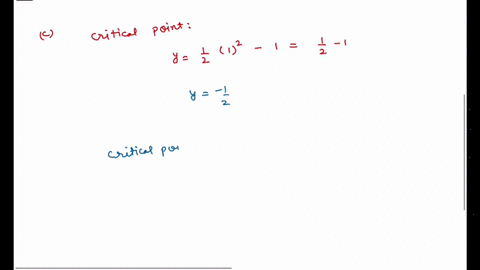 (c) critical point:
y = 1/2 (1)² - 1 = 1/2 - 1
y = -1/2
critical po